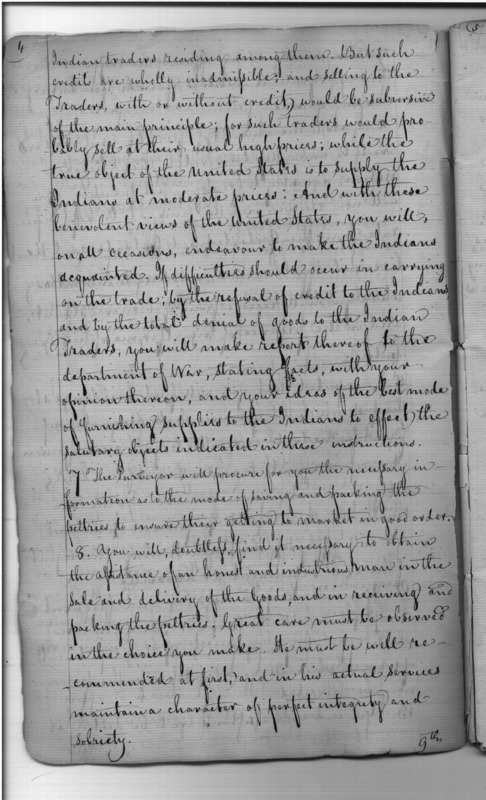 4
Indian traders residing among them. But such
credit are wholly inadmissible; and selling to the
Traders, with or without credit, would be subversive
of the main principle; for such traders would pro
bably sell at their usual high prices; while the
true object of the United States is to supply the
Indians at moderate prices: And with these
benevolent views of the United States, you will,
on all occasions, endeavour to make the Indians
acquainted. If difficulties should occur in carrying
on the trade; by the refusal of credit to the Indians
and by the total denial of goods to the Indian
Traders, you will make report thereof to the
department of War, stating facts, with your
opinion thereon, and your ideas of the best mode
of furnishing supplies to the Indians to effect the
salutary objects indicated in these instructions.
7 The Purveyor will procure for you the necessary in-
formation as to the mode of saving and packing the
peltries to ensure their getting to market in good order.
8. You will, doubtless, find it necessary to obtain
the assistance of an honest and industrious man in the
sale and delivery of the Goods, and in receiving and
packing the peltries. Great care must be observed
in the choice you make. He must be well re-
-commended at first, and in his actual services
maintain a character of perfect integrity and
sobriety.
9th,
5